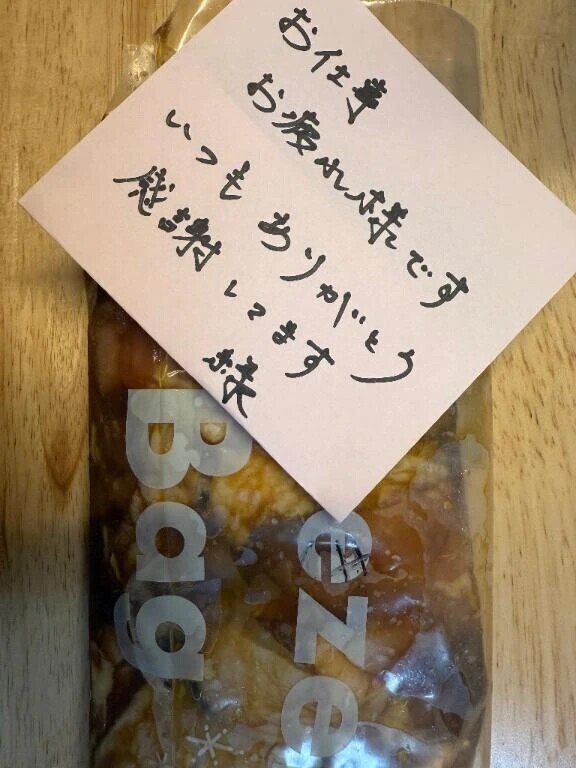 お仕事
お疲れ様です
いつもありがとう
感謝してます
様
eze
Bag